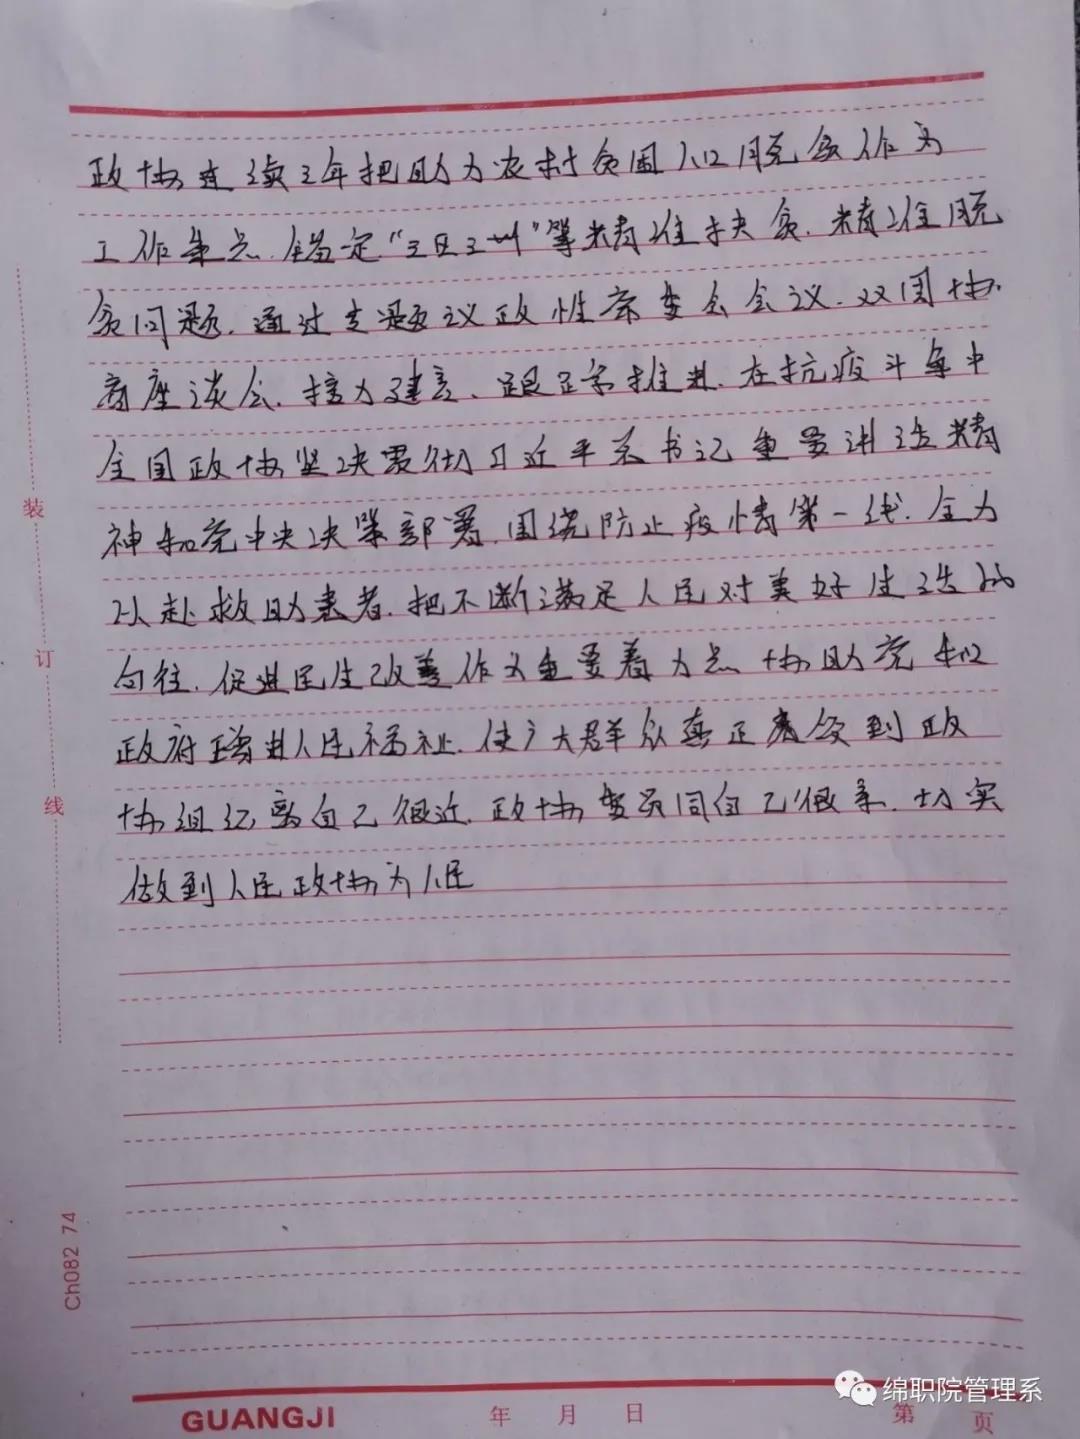 政协连续3年把助力农村贫困人口脱贫作为
工作重点.锚定“三区三州”等精准扶贫.精准脱
贫问题.通过专题议政性常委会会议.双周协.
商座谈会.接力建言、跟踪推进.在抗疫斗争中
全国政协坚决贯彻习近平总书记重要讲话精
神和党中央决策部署.围绕防止疫情第一线.全力
以赴救助患者.把不断满足人民对美好生活的
向往.促进民生改善作为重要着力点 协助党和
政府增进人民福祉.使广大群众真正感受到政
协组织离自己很近.政协委员同自己很亲.切实
做到人民政协为人民
装
订
线
Ch082 74
GUANGJI 年 月 日 第 页
绵职院管理系